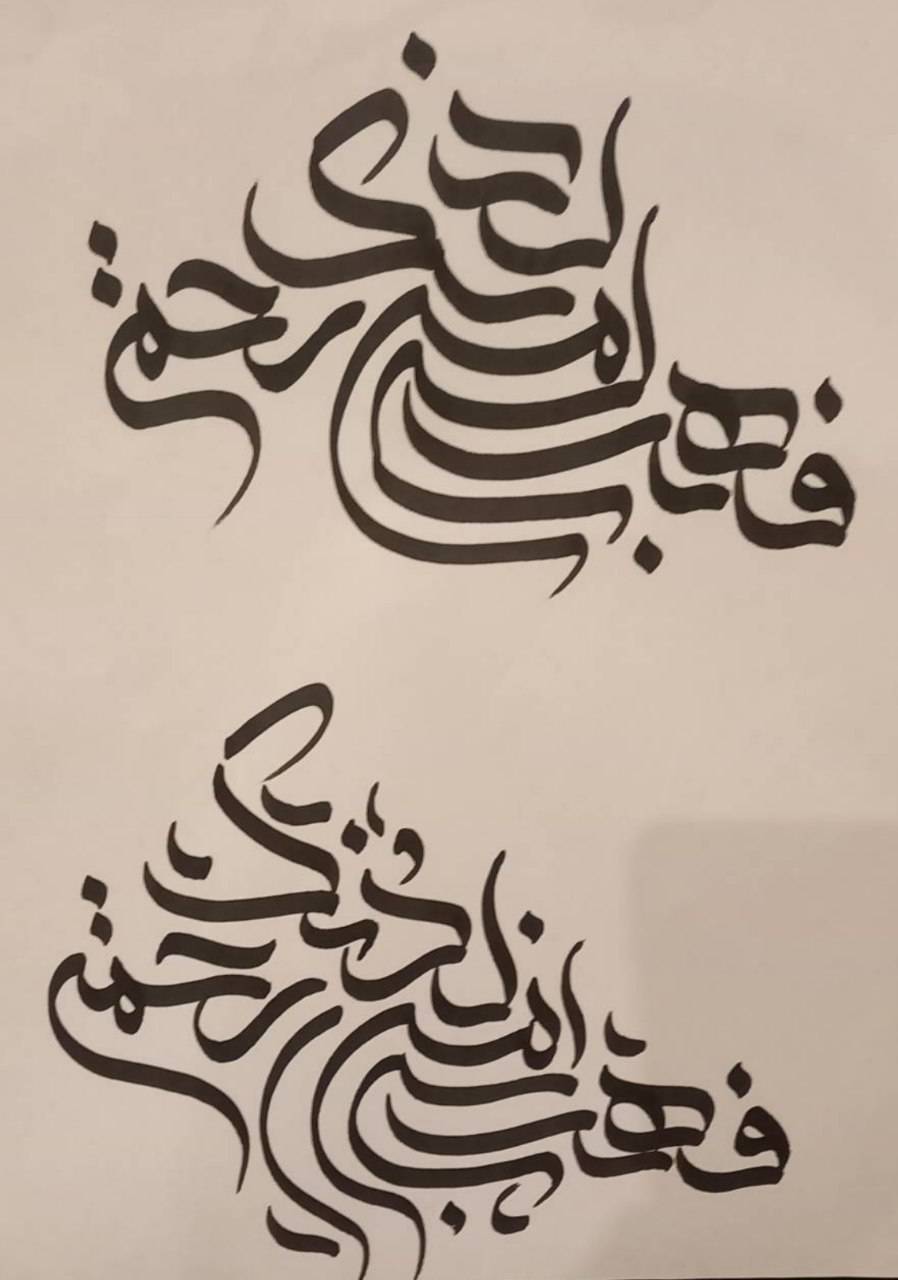 فهب لي من لدنك رحمة
فهب لي من لدنك رحمة